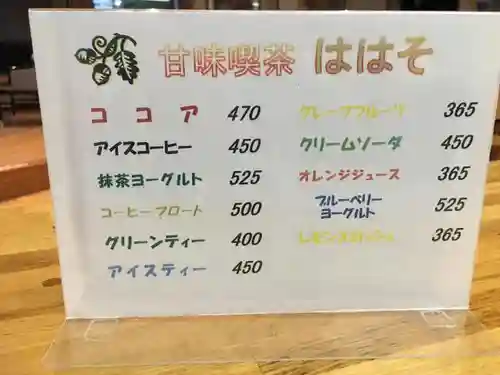 甘味喫茶 ははそ
ココア 470
アイスコーヒー 450
抹茶ヨーグルト 525
コーヒーフロート 500
グリーンティー 400
アイスティー 450
グレープフルーツ 365
クリームソーダ 450
オレンジジュース 365
ブルーベリー
ヨーグルト 525
365